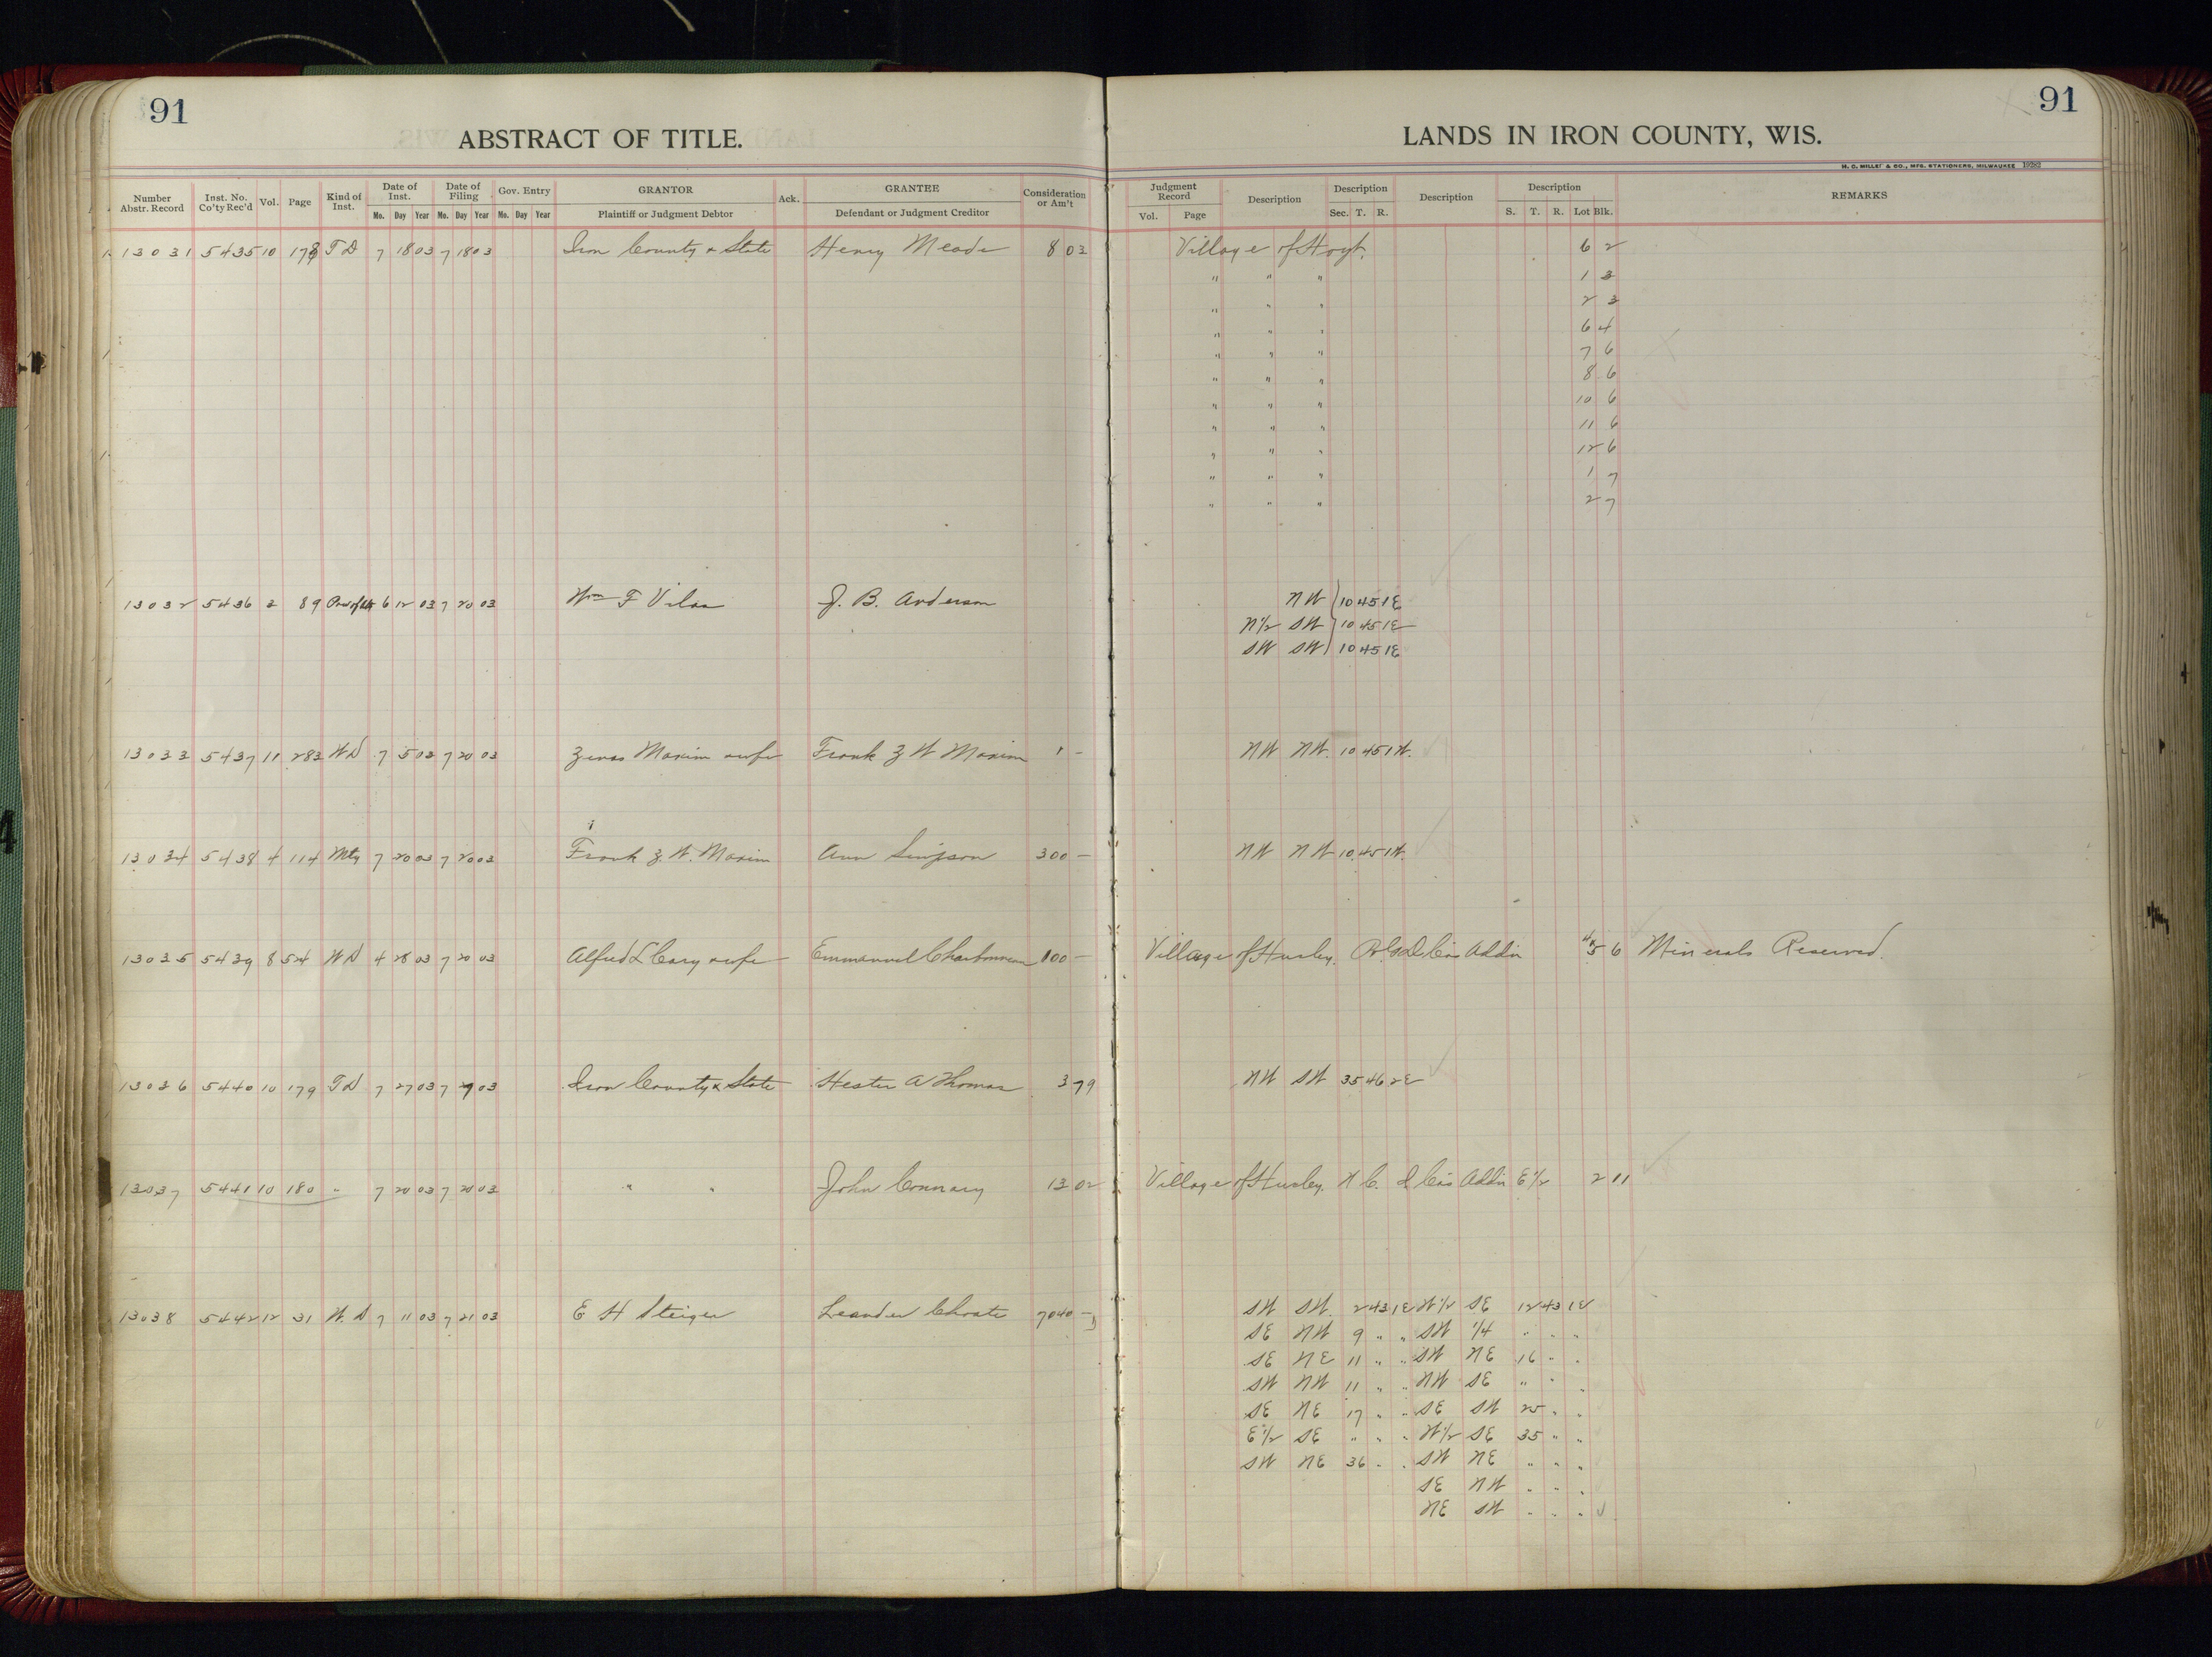 91
ABSTRACT OF TITLE.
LANDS IN IRON COUNTY, WIS.
91
H. C. MILLER & CO., MFG. STATIONERS, MILWAUKEE
Number Abstr. Record Inst. No. Co'ty Rec'd Vol. Page Kind of Inst. Date of Inst. Mo. Day Year Date of Filing Mo. Day Year Gov. Entry Mo. Day Year GRANTOR Plaintiff or Judgment Debtor Ack. GRANTEE Defendant or Judgment Creditor Consideration or Am't
Judgment Record Vol. Page Description Description Sec. T. R. Description Description S. T. R. Lot Blk. REMARKS
13031 5435 10 178 TD 7 18 03 7 18 03 Iron County & State Henry Meade 8 03 Village of Hoyt. 6 2
" " " 1 3
" " " 2 3
" " " 6 4
" " " 7 6
" " " 8 6
" " " 10 6
" " " 11 6
" " " 12 6
" " " 1 7
" " " 2 7
13032 5436 2 89 6 12 03 7 20 03 Wm F Vilas J. B. Anderson NW 10 45 1E
N1/2 SW 10 45 1E
SW SW 10 45 1E
13033 5437 11 283 WD 7 5 03 7 20 03 Zenas Maxim wife Frank Z W Maxim 1 - NW NW. 10 45 1W.
13034 5438 4 114 Mtg 7 20 03 7 20 03 Frank Z. W. Maxim Ann Simpson 300 - NW NW 10 45 1W.
13035 5439 8 524 WD 4 28 03 7 20 03 Alfred L Cary wife Emmanuel Charbonneau 100 - Village of Hurley. Co's Addn 5 6 Minerals Reserved.
13036 5440 10 179 TD 7 27 03 7 03 Iron County & State Hester A Thomas 3 79 NW SW 35 46 2E
13037 5441 10 180 " 7 20 03 7 20 03 " " John Connary 13 02 Village of Hurley. N C. D Co's Addn E1/2 2 11
13038 5442 12 31 W. D 7 11 03 7 21 03 E H Steiger Leander Choate 7040 - SW SW. 2 43 1E W1/2 SE 12 43 1E
SE NW 9 " " SW 1/4 " " "
SE NE 11 " " SW NE 16 " "
SW NW 11 " " NW SE " " "
SE NE 17 " " SE SW 25 " "
E1/2 SE " " " W1/2 SE 35 " "
SW NE 36 " " SW NE " " "
SE NW " " "
NE SW " " "